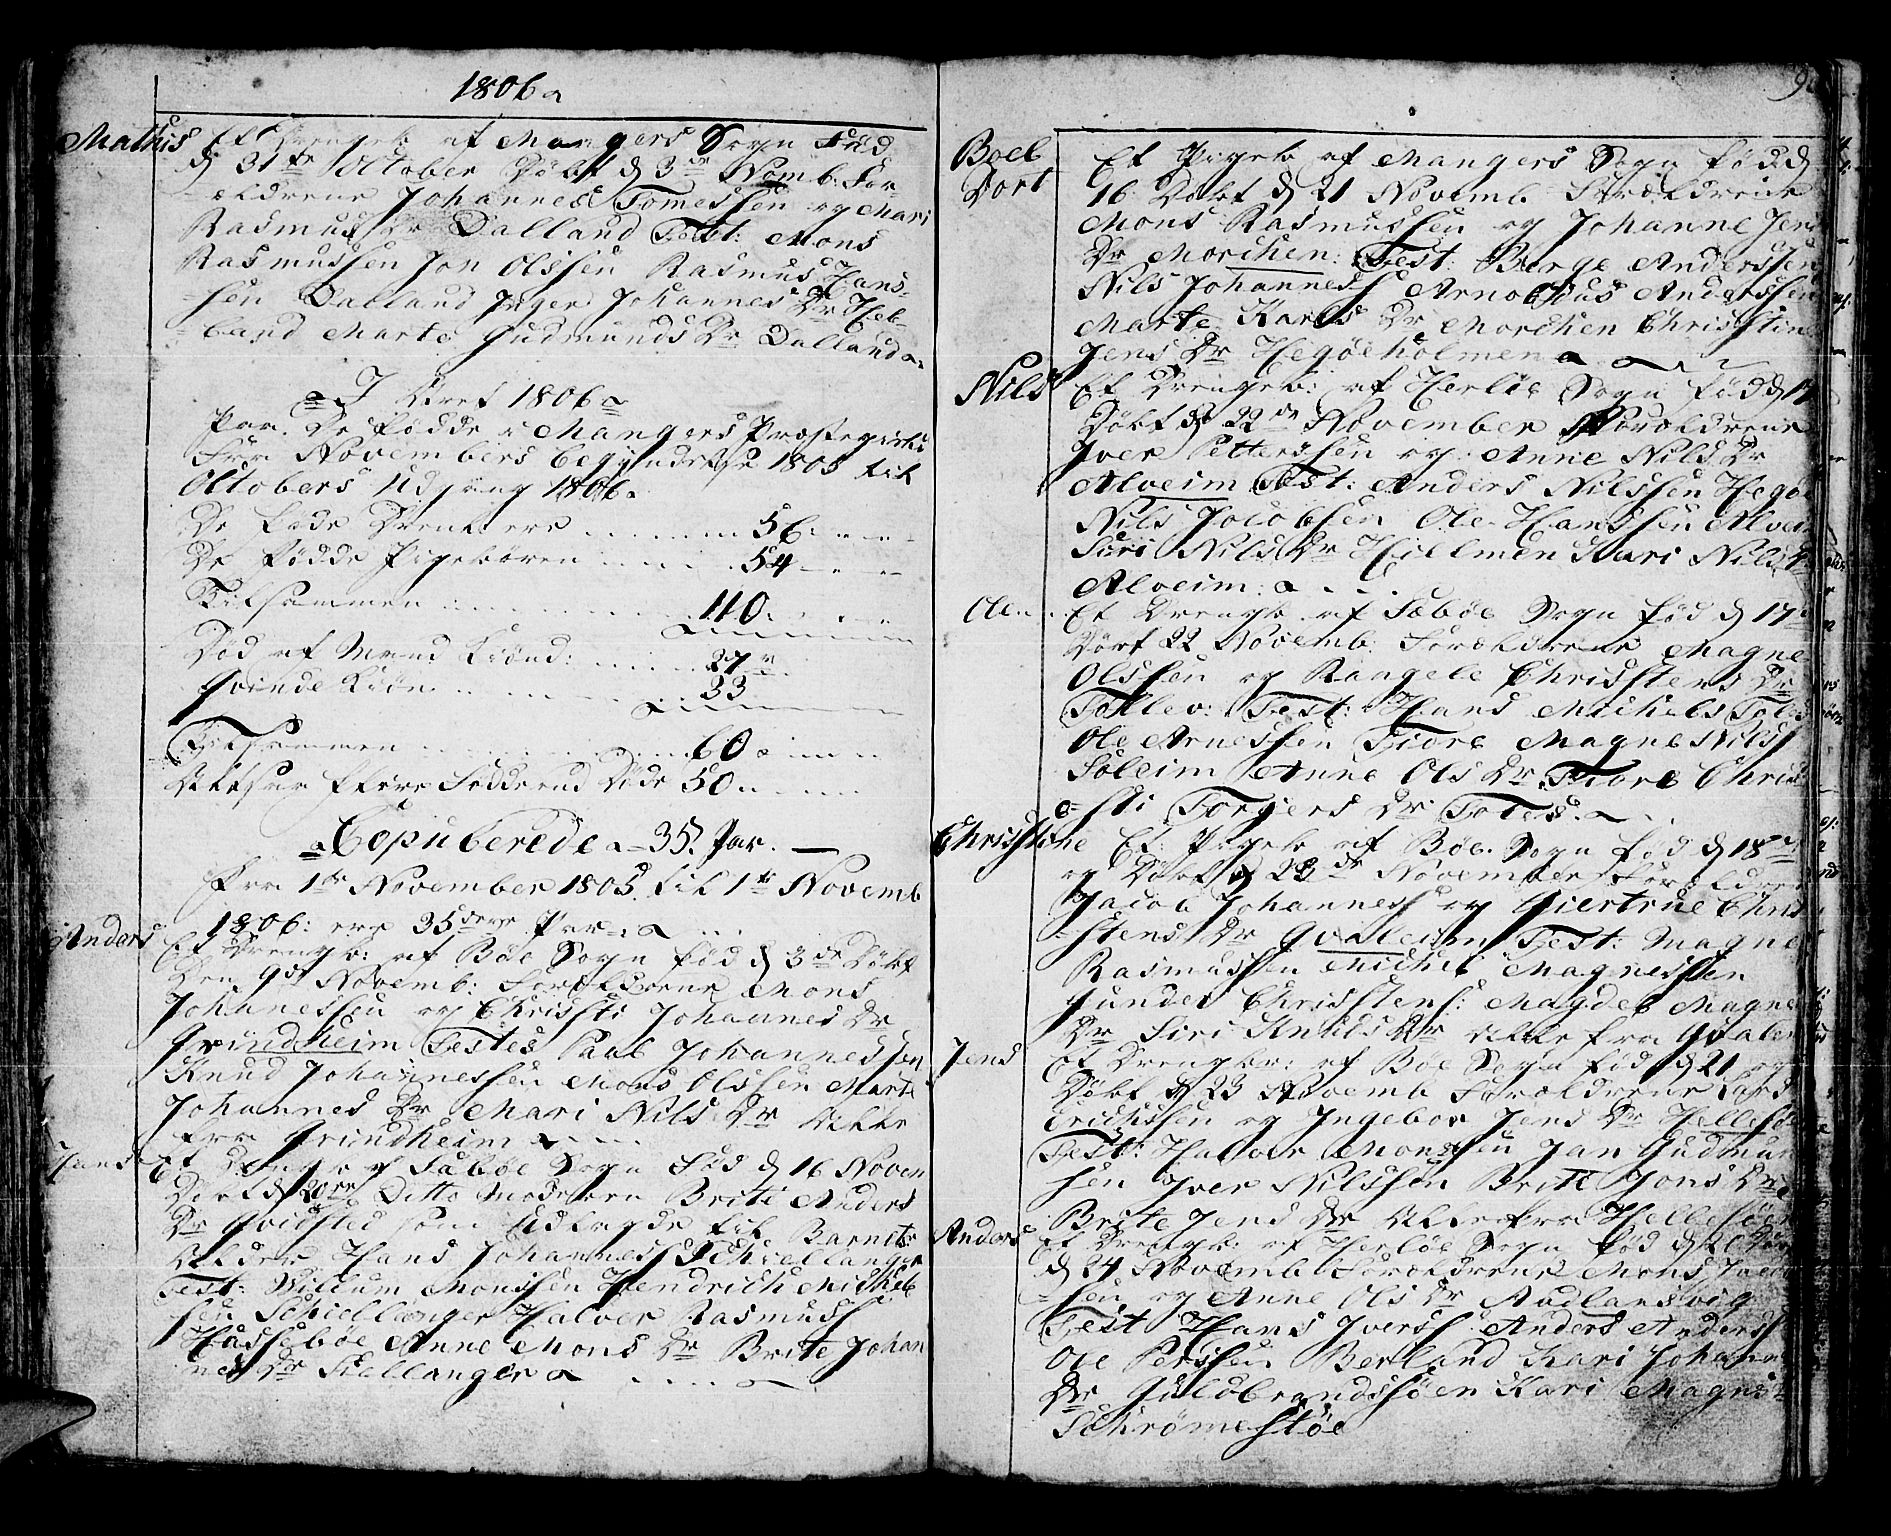 1806
Mathis Et Drengeb af Mangers Sogn Fød
d 31te October Døbt d 3de Novemb: For
ældrene Johannes Tomessen og Mari
Rasmus Dr Dalland Test: Mons
Rasmussen Jon Olssen Rasmus Hans-
-sen Dalland Inger Johannes Dr Heb-
-land Marte Gudmunds Dr Dalland
I Aaret 1806
De fødde i Mangers Præstegield
Fra Novembers Begyndelse 1805 til
Octobers Udgang 1806
De Føde Drenge ere 56
De Fødde Pigebøren 54
Tilsammen 110
Død af Mand Kiønd: 27
Qvinde Kiøn 33
Tilsammen 60
Altsaa flere Fødde end Døde 50
Copulerede 35 Par.
Fra 1te November 1805 til 1te Novemb
1806: ere 35 Par
Anders Et Drengb: af Bøe Sogn fød d 3de Døbt
den 9de Novemb: Forældrene Mons
Johanessen og Christi Johannes Dr
Grindheim Testes Paal Johannessen
Knud Johannessen Mons Olssen Marte
Johannes Dr Mari Nils Dr Alle
fra Grindheim
Hans Et Drengb af Sæbøe Sogn Fød d 16 Novem
Døbt d 20de Ditto Moderen Brite Anders
Dr Qvidsted som Udlagde til Barnets
Fader Hans Johanness Schiellanger
Test: Willum Monssen Hendrich Michel
sen Schiellanger Halver Rasmuss
Husebøe Anne Mons Dr Brite Johan
nes Dr Skellanger
Boel
Dort Et Pigeb af Mangers Sogn fød d
16 Døbt d 21 Novemb Forældrene
Mons Rasmussen og Johanne Jens
Dr Morchen: Test: Berge Anderssen
Nils Johanness Arnoldus Anderssen
Marte Karls Dr Morchen Christine
Jens Dr Hegøeholmen
Nils Et Drengeb: af Herløe Sogn fød d 17
Døbt d 22de November Forældrene
Iver Pettersen og Anne Nils Dr
Alveim Test: Anders Nilssen Hegøe
Nils Jacobsen Ole Hanssen Alveim
Siri Nils Dr Hillmen Kari Nils Dr
Alveim:
Ole Et Drengb af Sæbøe Sogn fød d 17
Døbt 22 Novemb. Forældrene Magne
Olssen og Rangele Christens Dr
Test: Hans Michels
Ole Arnessen Fiore Magne Nilss
Soleim Anne Ols Dr Fiore Chri
-sti Torgers Dr
Christine Et Pigeb af Bøe Sogn fød d 18de
og Døbt d 23de November Forældrene
Jacob Johanness og Giertrue Chri
-stens Dr Qvaleim Test: Magne
Rasmussen Michel Magnessen
Gunder Christens: Magdel Magne
Dr Siri Knuds Dr Alle fra Qvalem
Jens Et Drengb: af Bøe Sogn fød d 21 og
Døbt d 23 Novemb Forældrene Lars
Erichssen og Ingebor Jens Dr Hellesøe
Test: Halver Monssen Jan Gudmun
sen Iver Nilssen Brite Jons Dr
Brite Jens Dr Alle fra Hellesøen
Anders Et Drengb: af Herløe Sogn fød d 20 Døbt
d 24 Novemb Forældrene Mons Jacob
-sen og Anne Ols Dr Rødlandsvig
Test Hans Iverss: Anders Anderss
Ole Perssen Berland Kari Johannes
Dr Guldbrandsøen Kari Magnes
Schrømestøe